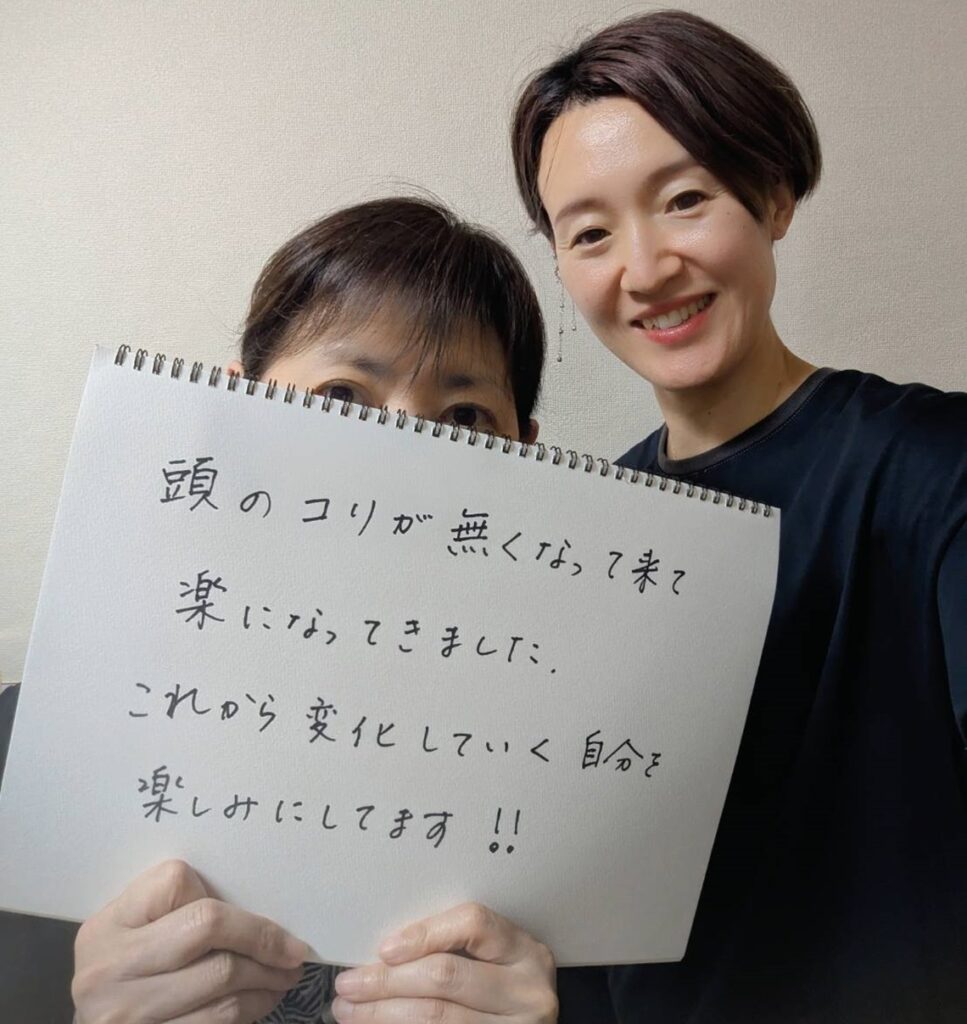 頭のコリが無くなって来て
楽になってきました.
これから変化していく自分を
楽しみにしてます!!